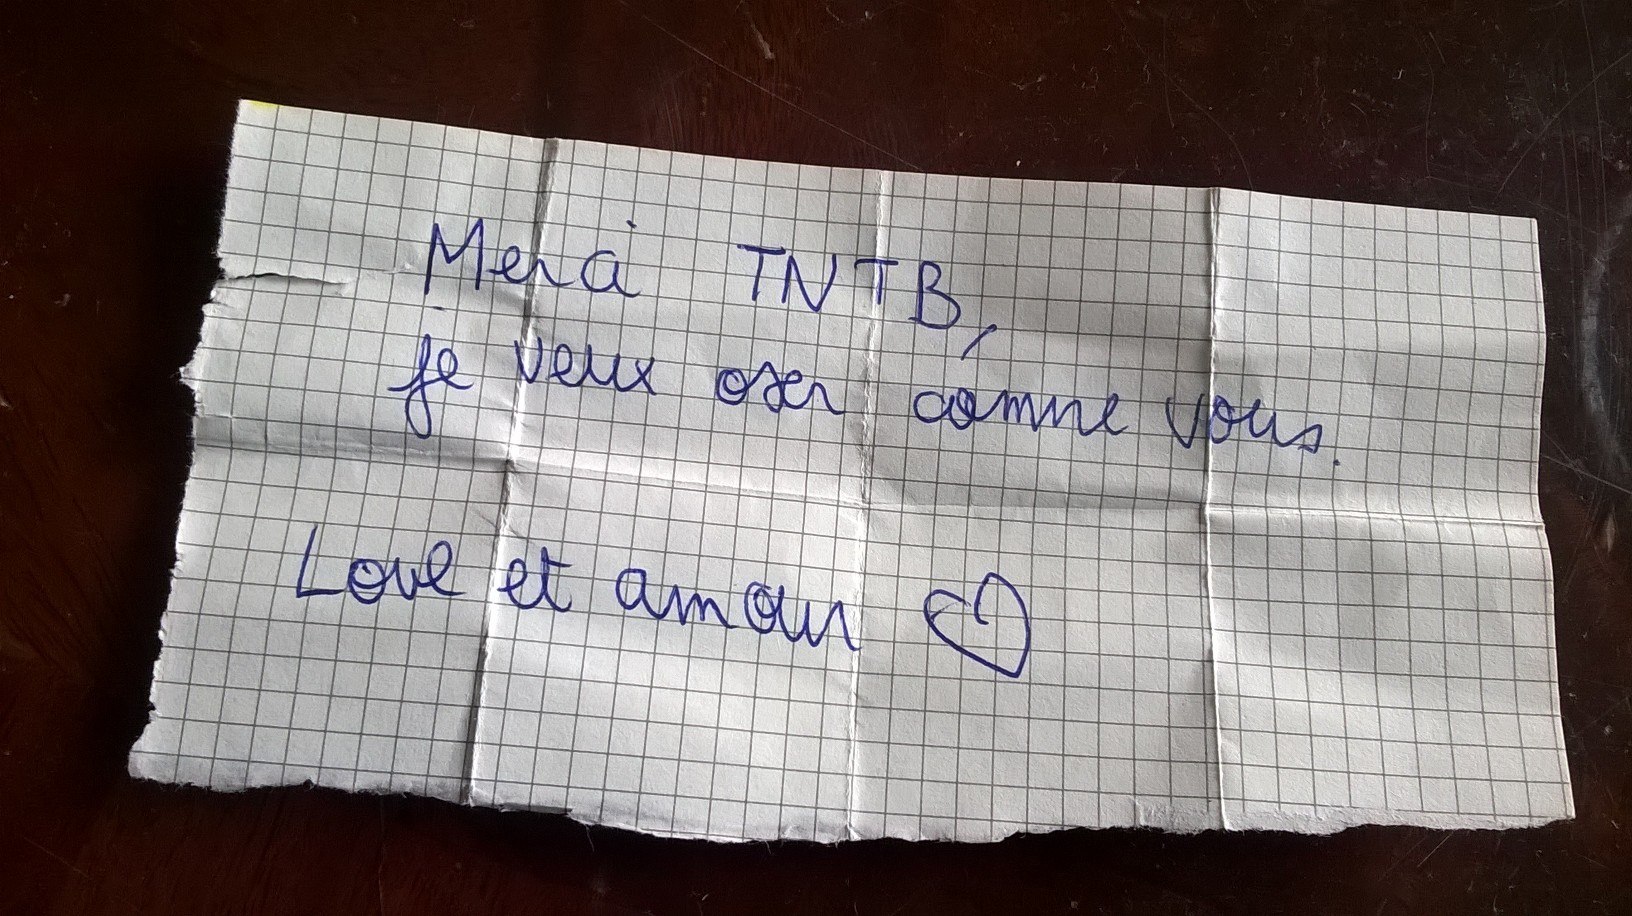 Merci TNTB,
je veux oser comme vous.
Love et amour